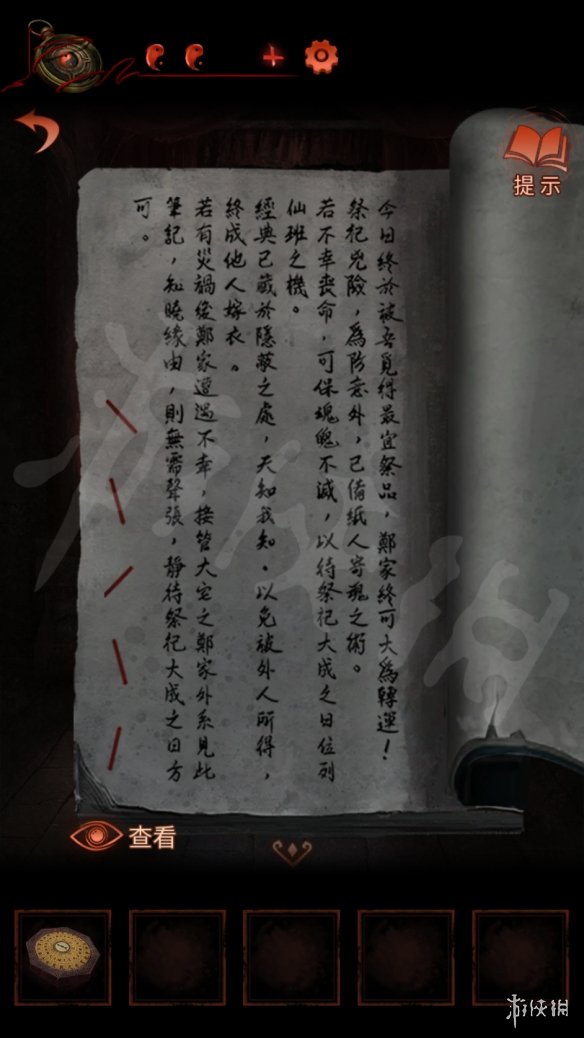 提示
今日終於被吾覓得最宜祭品，鄭家終可大為轉運！
祭祀兇險，為防意外，已備紙人寄魂之術。
若不幸喪命，可保魂魄不滅，以待祭祀大成之日位列
仙班之機。
經典已藏於隱蔽之處，天知我知。以免被外人所得，
終成他人嫁衣。
若有災禍使鄭家遭遇不幸，接管大宅之鄭家外系見此
筆記，知曉緣由，則無需聲張，靜待祭祀大成之日方
可。
查看
游侠网